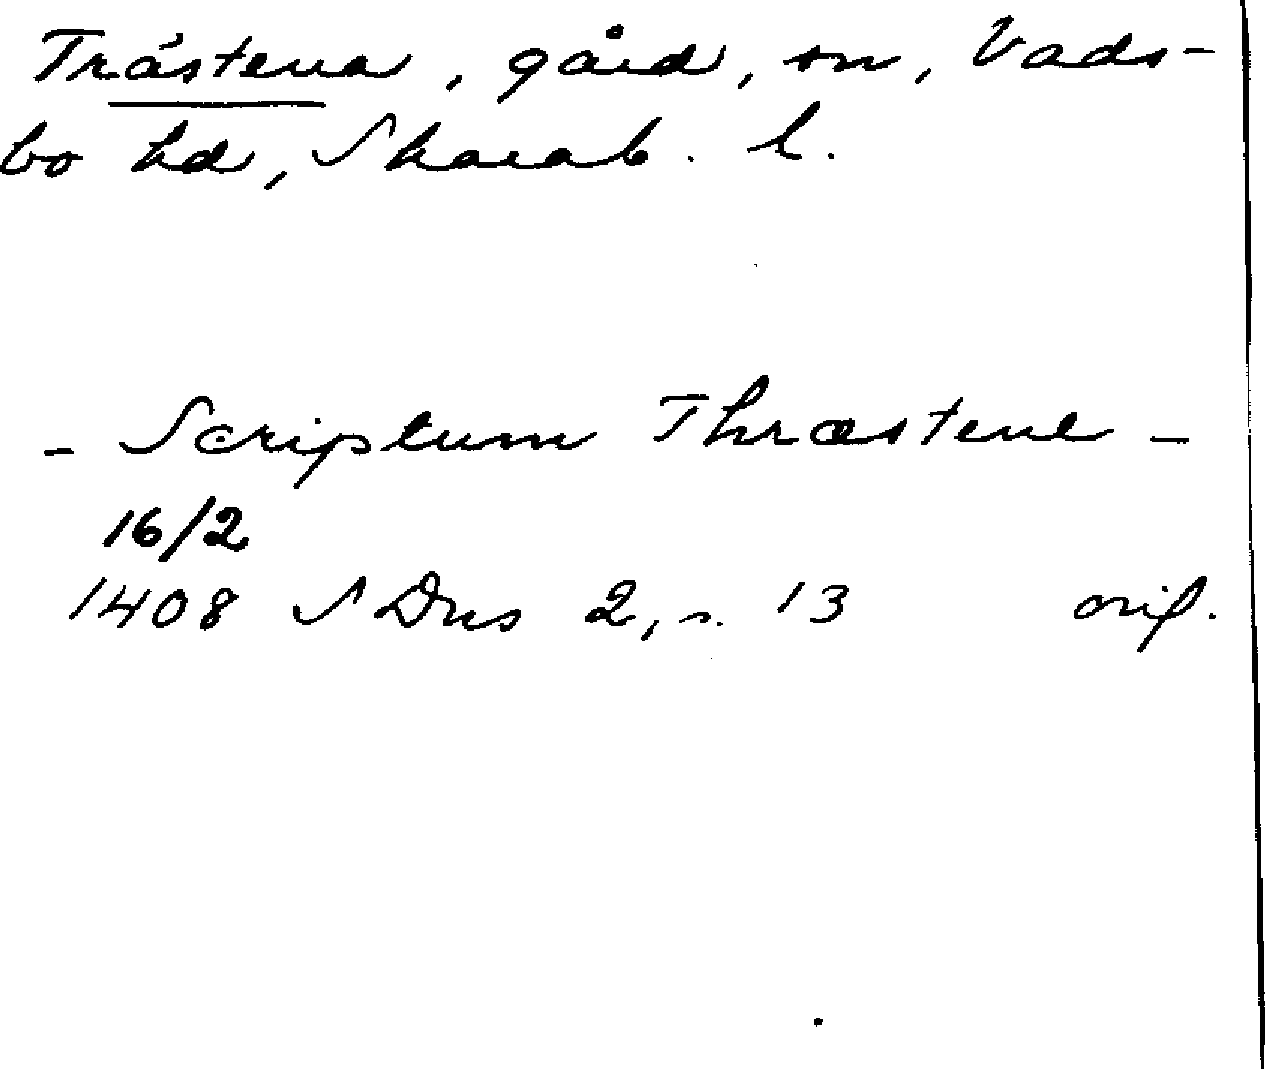 Trästena, gård, sn, Vads-
bo hd, Skarab. l.
- Scriptum Thræstene -
16/2
1408 SDns 2, s. 13 orig.